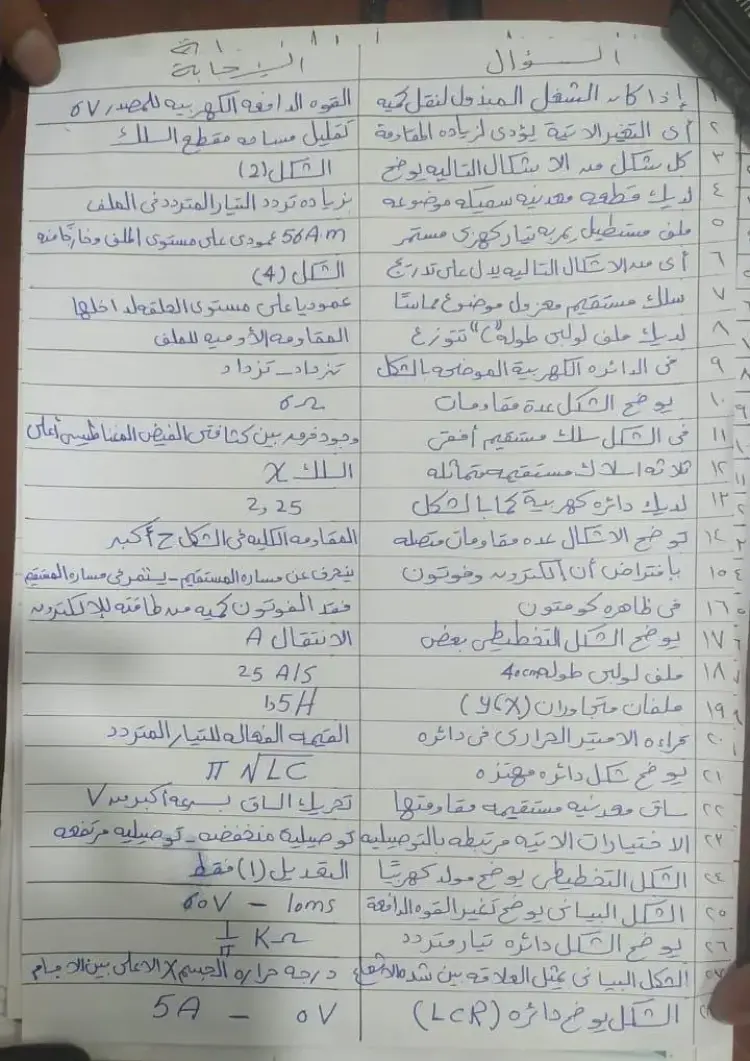 السؤال الإجابة
١ إذا كان الشغل المبذول لنقل كمية القوه الدافعه الكهربيه للمصدر 6V
٢ أى التغيرالاتية يؤدى لزياده المقاومة تقليل مساحه مقطع السلك
٣ كل شكل من الاشكال التاليه يوضح الشكل (2)
٤ لديك قطعه معدنيه سميكه موضوعه بزياده تردد التيار المتردد فى الملف
٥ ملف مستطيل يمر به تيار كهربى مستمر 56A.m عمودى على مستوى الملف وخارجا منه
٦ أى من الاشكال التاليه يدل على تدريج الشكل (4)
٧ سلك مستقيم معزول موضوع مماسًا عموديا على مستوى الحلقه لداخلها
٨ لديك ملف لولبى طوله "L" تتوزع المقاومه الأوميه للملف
٩ فى الدائره الكهربية الموضحه بالشكل تزداد - تزداد
١٠ يوضح الشكل عدة مقاومات 6Ω
١١ فى الشكل سلك مستقيم أفقى وجود فرق بين كثافتى الفيض المغناطيسى أعلى
١٢ ثلاثه اسلاك مستقيمه متماثله السلك X
١٣ لديك دائره كهربية كما بالشكل 2,25
١٤ توضح الاشكال عده مقاومات متصله المقاومه الكليه فى الشكل ج أكبر
١٥ بافتراض أن إلكترون وفوتون ينحرف عن مساره المستقيم - يستمر فى مساره المستقيم
١٦ فى ظاهره كومتون فقد الفوتون كميه من طاقته للإلكترون
١٧ يوضح الشكل التخطيطى بعض الانتقال A
١٨ ملف لولبى طوله 40cm 25 A/S
١٩ ملفان متجاوران (X,Y) 1,5H
٢٠ قراءه الاميتر الحرارى فى دائره القيمه الفعاله للتيار المتردد
٢١ يوضح شكل دائره مهتزه π √LC
٢٢ ساق معدنيه مستقيمه مقاومتها تحريك الساق بسرعه أكبر من V
٢٣ الاختيارات الاتيه مرتبطه بالتوصيليه توصيلية منخفضه - توصيليه مرتفعه
٢٤ الشكل التخطيطى يوضح مولد كهربيًا التعديل (1) فقط
٢٥ الشكل البيانى يوضح تغير القوه الدافعة 60V - 10ms
٢٦ يوضح الشكل دائره تيار متردد 1/π KΩ
٢٧ الشكل البيانى يمثل العلاقه بين شده الاشعاع درجه حراره الجسم X الاعلى بين الاجسام
الشكل يوضح دائره (LCR) 5A - 0V